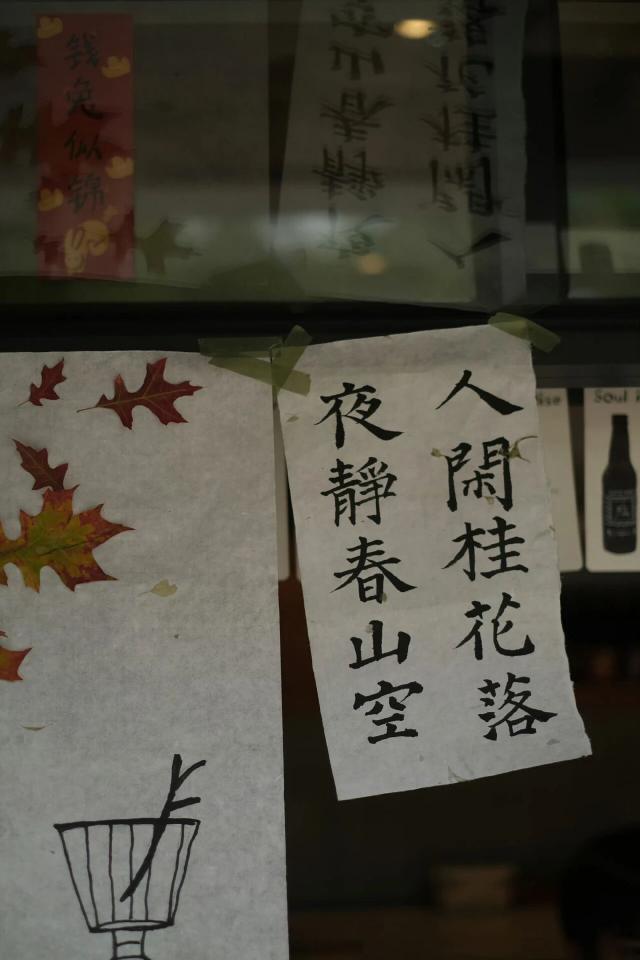 錢兔似錦
人閑桂花落
夜靜春山空
Soul